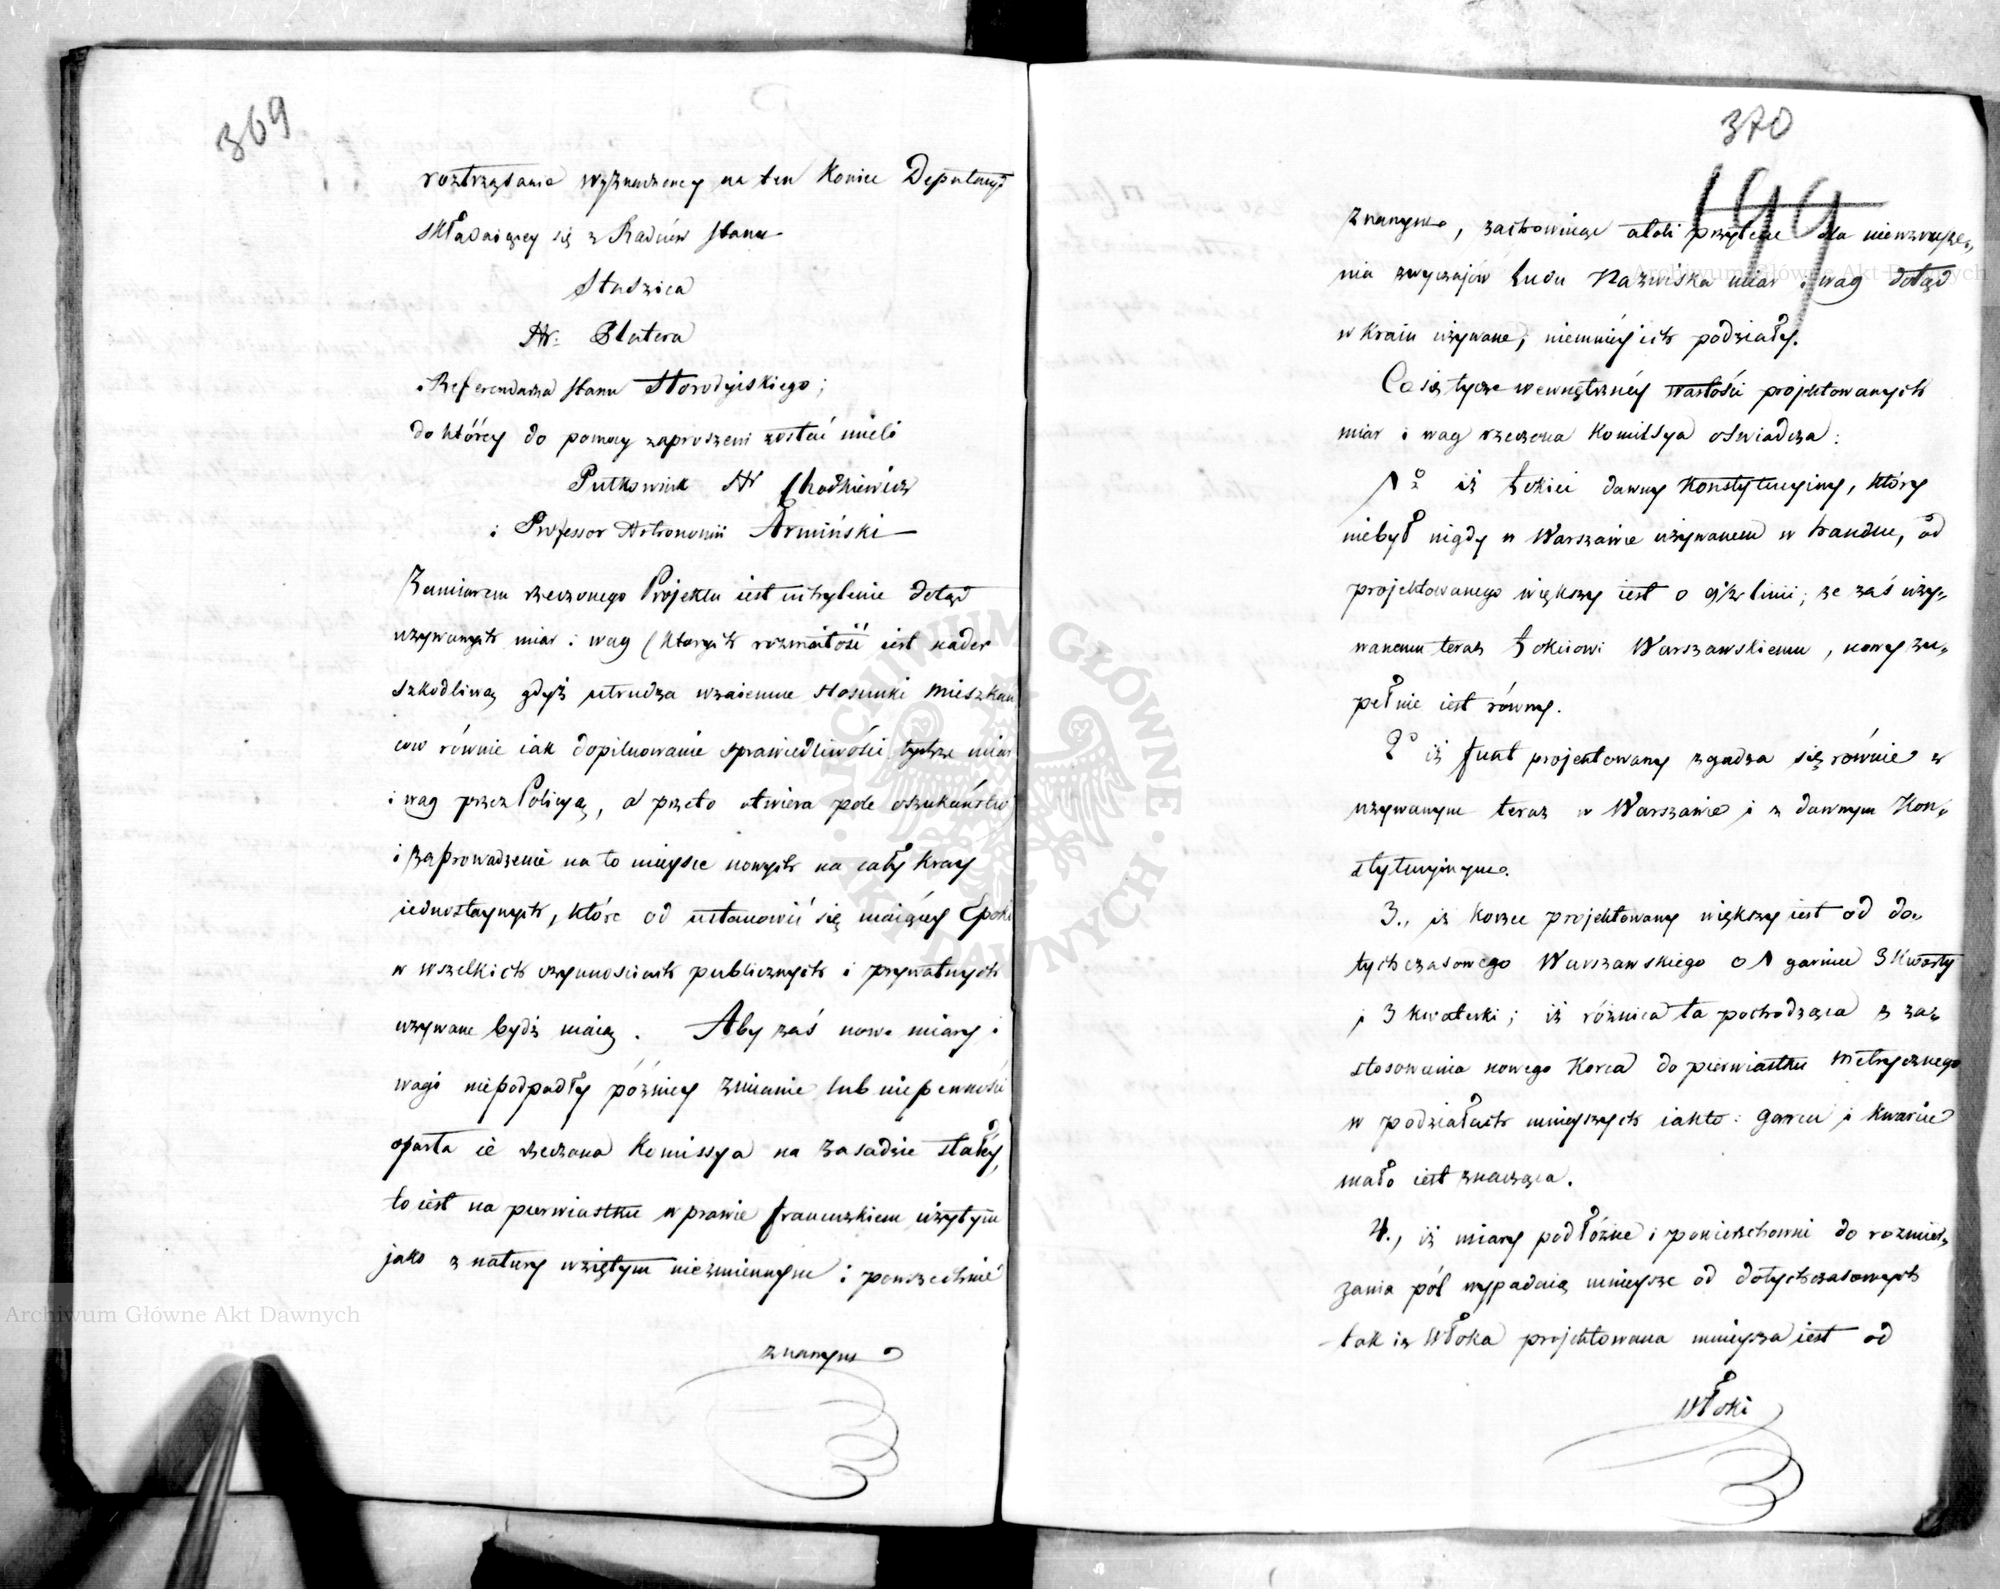 369
roztrząsanie wyznaczoney na ten Koniec Deputacyi
składaiącey się z Radców Stanu
Staszica
Hr. Platera
i Referendarza Stanu Horodyiskiego;
do któréy do pomocy zaproszeni zostać mieli
Pułkownik Hr Chodkiewicz
i Professor Astronomii Armiński
Zamiarem rzeczonego Projektu iest uchylenie dotąd
używanych miar i wag (ktorych rozmaitość iest nader
szkodliwą gdyż utrudza wzaiemne stosunki mieszkań
cow równie iak dopilnowanie sprawiedliwości tychże miar
i wag przez Policyą, a przeto otwiera pole oszukaństw)
i zaprowadzenie na to mieysce nowych na cały kray
iednostaynych, które od ustanowić się maiącéy Epoki
w wszelkich czynnościach publicznych i prywatnych
używane bydź maią. Aby zaś nowe miary i
wagi niepodpadły późniey zmianie lub niepewności
oparła ie rzeczona Komissya na zasadzie stałéy,
to iest na pierwiastku w prawie francuzkiem użytym
jako z natury wziętym niezmiennym i powszechnie
znanym
370
199
znanym, zachowuiąc atoli przytem dla niewzrusze„
nia zwyczajów Ludu Nazwiska miar i wag dotąd
w Kraiu używane, niemniéy ich podziały.
Co się tycze wewnętrznéy wartości projektowanych
miar i wag rzeczona Komissya oświadcza:
1º iż Łokieć dawny Konstytucyiny, który
niebył nigdy w Warszawie używanem w handlu, od
projektowanego większy iest o 9½ linii; że zaś uży„
wanemu teraz Łokciowi Warszawskiemu, nowy zu„
pełnie iest równy.
2º iż funt projektowany zgadza się równie z
używanym teraz w Warszawie i z dawnym Kon„
stytucyinym.
3., iż korzec projektowany większy iest od do„
tychczasowego Warszawskiego o 1 garniec 3 kwarty
i 3 kwaterki; iż różnica ta pochodząca z za„
stosowania nowego Korca do pierwiastku Metrycznego
w podziałach mnieyszych iakto: garcu i kwarcie
mało iest znacząca.
4., iż miary podłóżne i powierzchowni do rozmie„
rzania pól wypadaią mnieysze od dotychczasowych
tak iż Włoka projektowana mnieysza iest od
Włoki
Archiwum Główne Akt Dawnych
Archiwum Główne Akt Dawnych
ARCHIWUM GŁÓWNE AKT DAWNYCH